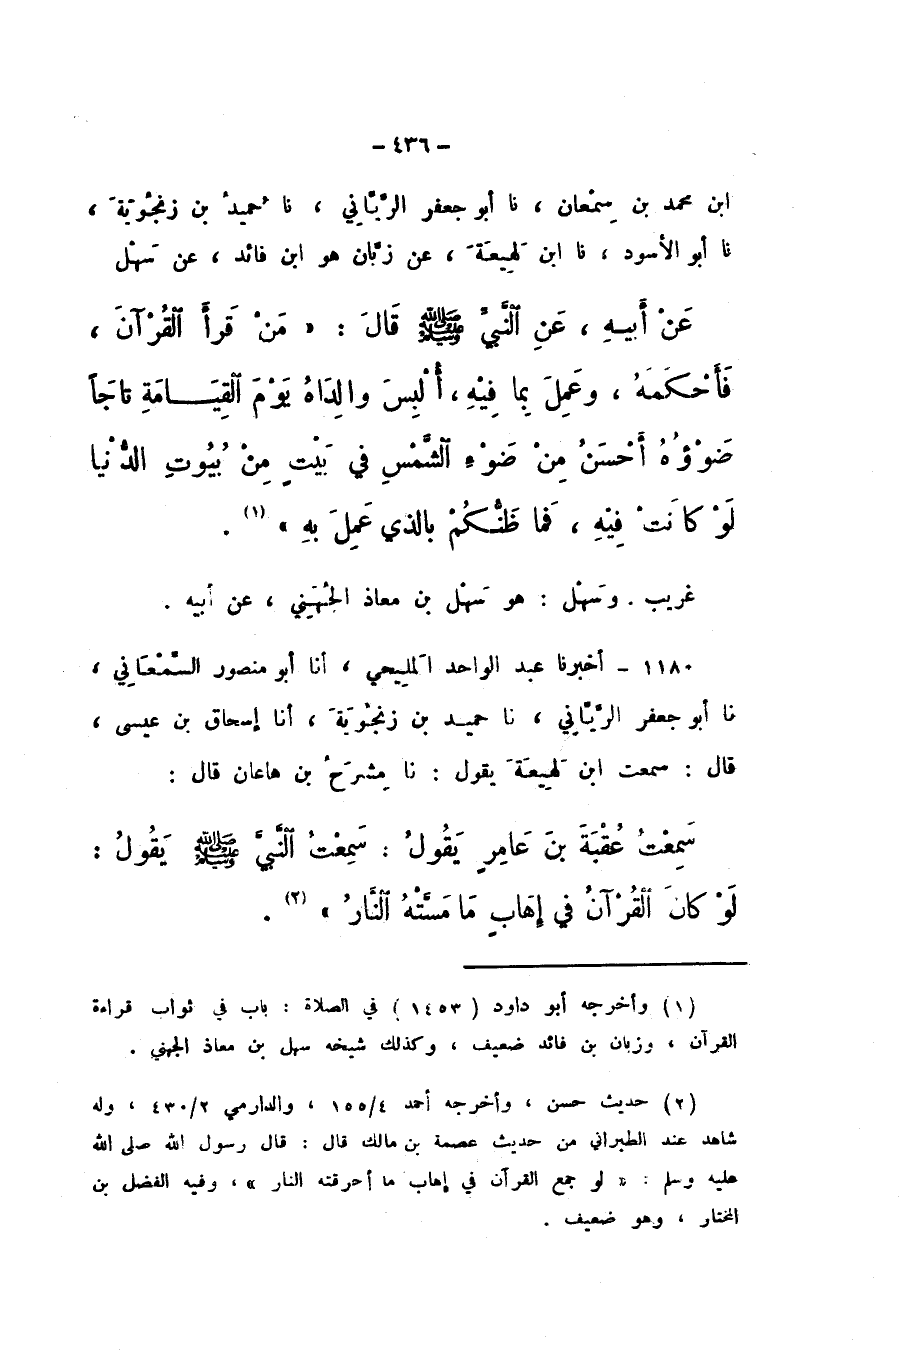 - ٤٣٦ -
ابن محمد بن سِمْعان ، نا أبو جعفر الرَّيَّاني ، نا حُميدُ بن زنْجُوَيَةَ ،
نا أبو الأسود ، نا ابن لَهِيعَةَ ، عن زبَّان هو ابن فائد ، عن سَهْل
عَنْ أَبيهِ ، عَنِ ٱلنَّبِيِّ ﷺ قَالَ : « مَنْ قَرأَ ٱلقُرْآنَ ،
فَأَحْكَمَهُ ، وعَمِلَ بِما فِيْهِ ، أُلْبِسَ والِدَاهُ يَوْمَ ٱلقِيَامَةِ تاجَاً
ضَوْؤُهُ أَحْسَنُ مِنْ ضَوْءِ ٱلشَّمْسِ في بَيْتٍ مِنْ بُيُوتِ الدُّنْيا
لَوْ كانَتْ فِيْهِ ، فَما ظَنُّكُمْ بالذي عَمِلَ بهِ » (١) .
غريب . وسَهْل : هو سَهْل بن معاذ الجُهَنِي ، عن أبيه .
١١٨٠ - أخبرنا عبد الواحد المَلِيحي ، أنا أبو منصور السَّمْعَاني ،
نا أبو جعفر الرَّيَّاني ، نا حميد بن زنْجُوَيَةَ ، أنا إسحاق بن عيسى ،
قال : سمعت ابن لَهِيعَةَ يقول : نا مِشْرَحُ بن هاعان قال :
سَمِعْتُ عُقْبَةَ بنَ عَامِرٍ يَقُولُ : سَمِعْتُ ٱلنَّبِيَّ ﷺ يَقُولُ :
لَوْ كانَ ٱلقُرْآنُ في إهَابٍ مَا مَسَّتْهُ ٱلنَّارُ » (٢) .
(١) وأخرجه أبو داود ( ١٤٥٣ ) في الصلاة : باب في ثواب قراءة
القرآن ، وزبان بن فائد ضعيف ، وكذلك شيخه سهل بن معاذ الجهني .
(٢) حديث حسن ، وأخرجه أحمد ١٥٥/٤ ، والدارمي ٤٣٠/٢ ، وله
شاهد عند الطبراني من حديث عصمة بن مالك قال : قال رسول الله صلى الله
عليه وسلم : « لو جمع القرآن في إهاب ما أحرقته النار » ، وفيه الفضل بن
المختار ، وهو ضعيف .